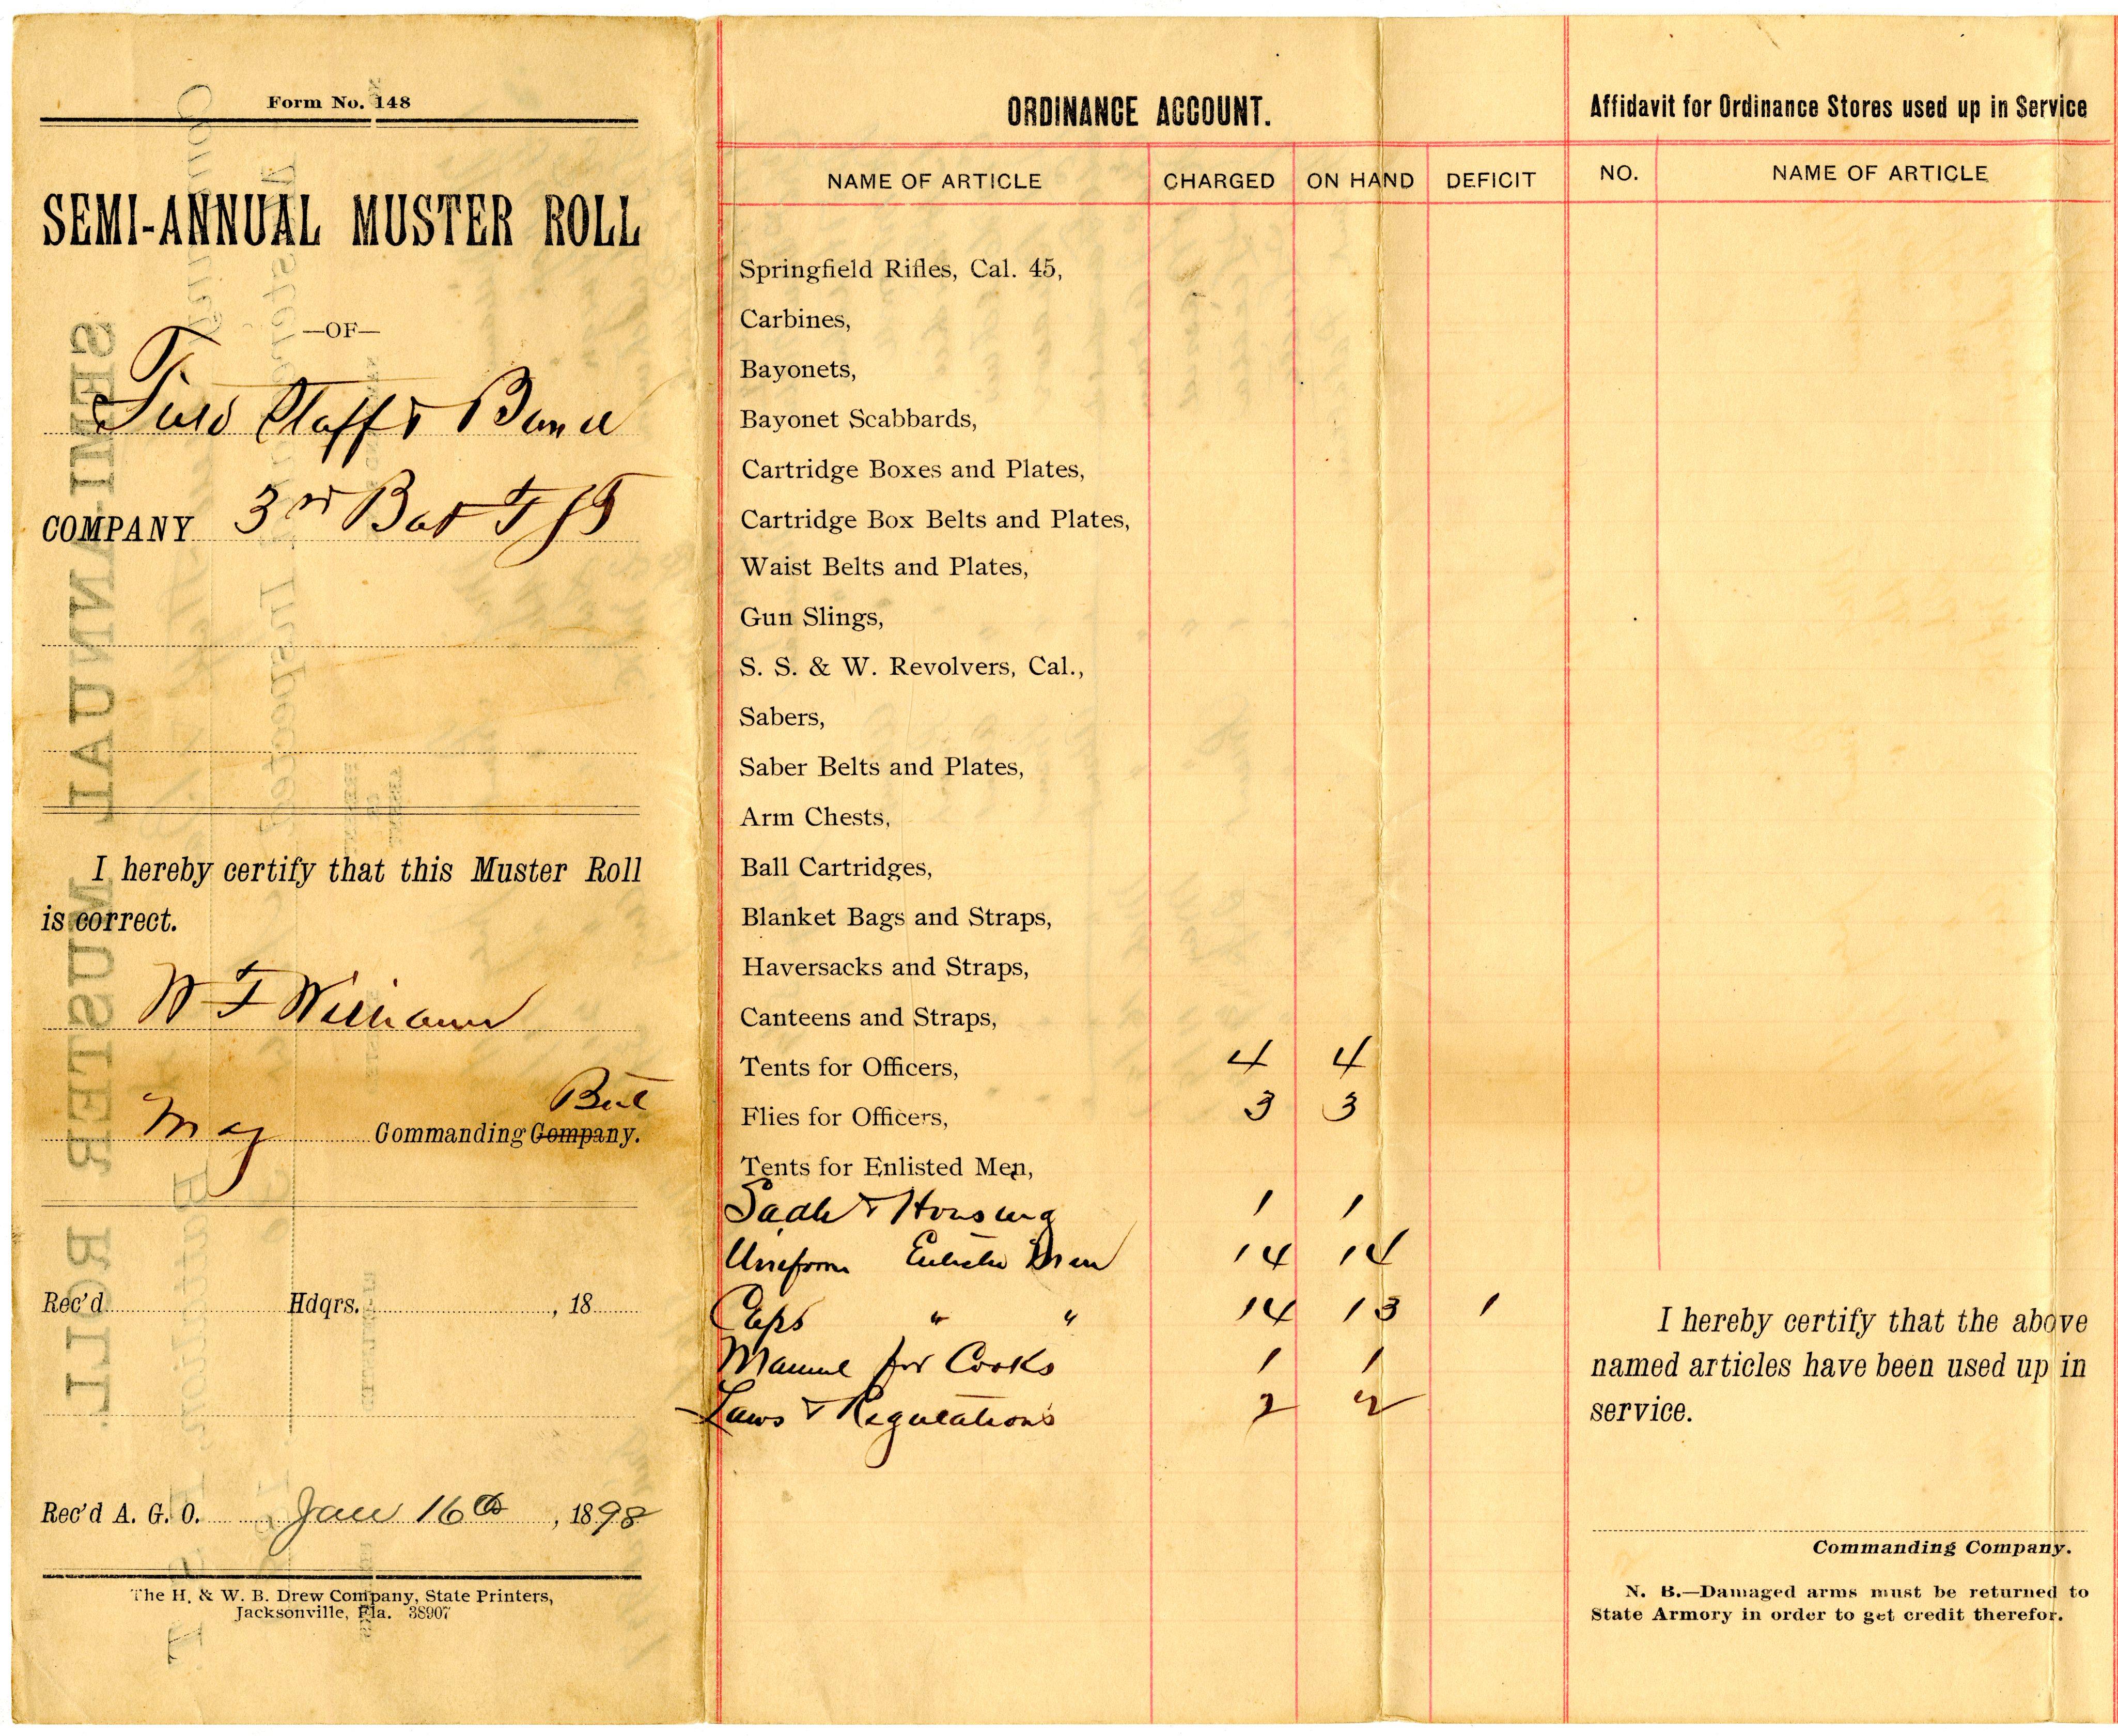 Form No. 148
SEMI-ANNUAL MUSTER ROLL
—OF—
Field Staff & Band
COMPANY 3rd Bat F S T
I hereby certify that this Muster Roll
is correct.
W F Williams
Bat
Maj Commanding Company.
Rec'd Hdqrs. , 18
Rec'd A. G. O. Jan 16th, 1898
The H. & W. B. Drew Company, State Printers,
Jacksonville, Fla. 38907
ORDINANCE ACCOUNT.
NAME OF ARTICLE CHARGED ON HAND DEFICIT
Springfield Rifles, Cal. 45,
Carbines,
Bayonets,
Bayonet Scabbards,
Cartridge Boxes and Plates,
Cartridge Box Belts and Plates,
Waist Belts and Plates,
Gun Slings,
S. S. & W. Revolvers, Cal.,
Sabers,
Saber Belts and Plates,
Arm Chests,
Ball Cartridges,
Blanket Bags and Straps,
Haversacks and Straps,
Canteens and Straps,
Tents for Officers, 4 4
Flies for Officers, 3 3
Tents for Enlisted Men,
Sadle & Housing 1 1
Uniform Enlisted Men 14 14
Caps " " 14 13 1
Manual for Cooks 1 1
Laws & Regulations 2 2
Affidavit for Ordinance Stores used up in Service
NO. NAME OF ARTICLE
I hereby certify that the above
named articles have been used up in
service.
Commanding Company.
N. B.—Damaged arms must be returned to
State Armory in order to get credit therefor.